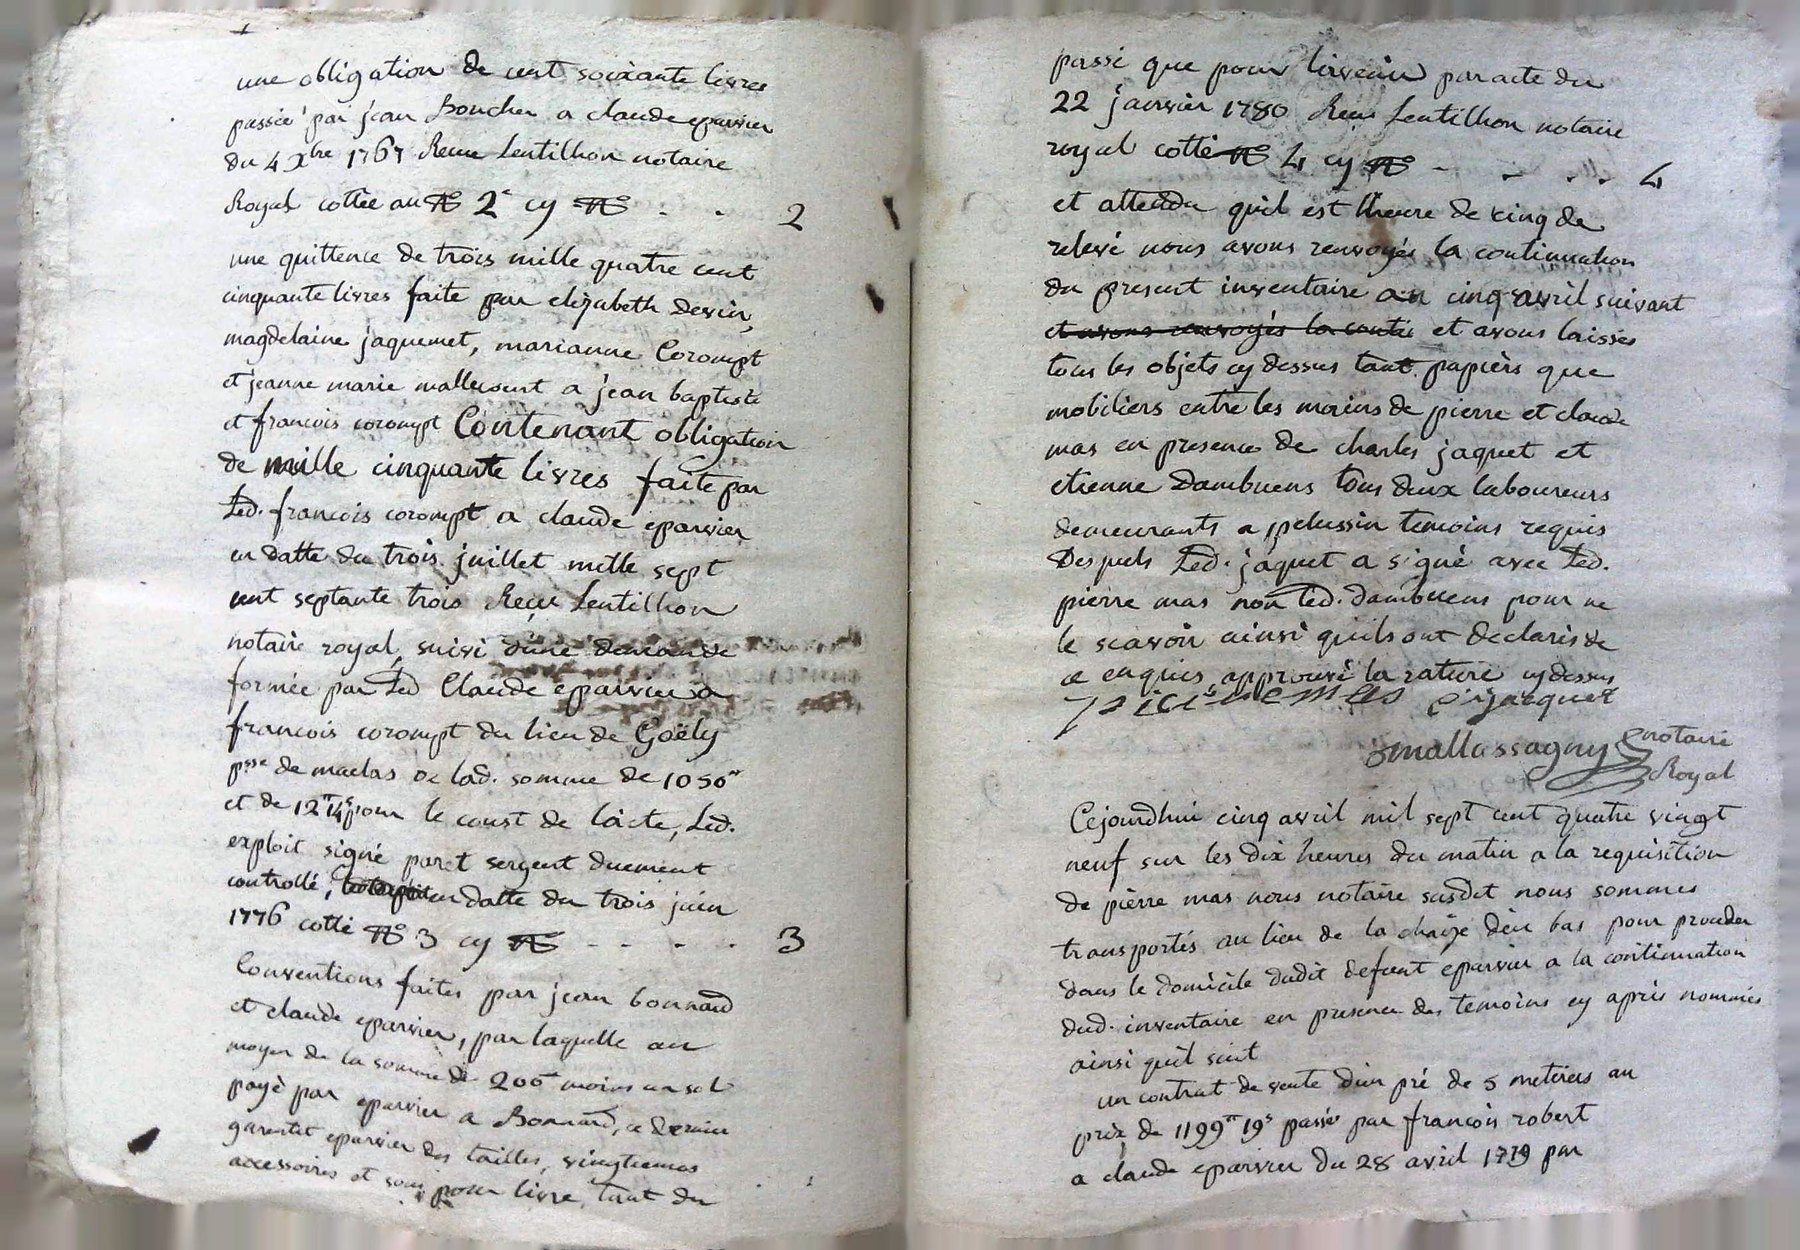 une obligation de cent soixante livres
passée par jean Boucher a claude eparvier
du 4 Xbre 1767 Recue Lentilhon notaire
Royal cottée au N° 2 cy N° - - 2
une quittence de trois mille quatre cent
cinquante livres faite par elizabeth Devin,
magdelaine jaquemet, marianne Corompt
et jeanne marie mallecourt a jean baptiste
et francois corompt Contenant obligation
de mille cinquante livres faite par
Led. francois corompt a claude eparvier
en datte du trois juillet mille sept
cent septante trois Recue Lentilhon
notaire royal, suivi d'une demande
formée par Led Claude eparvier a
francois corompt du lieu de Goëly
psse de maclas de lad. somme de 1050tt
et de 12tt 14s pour le coust de l'acte, Led.
exploit signé par t sergent duement
controllé, en datte du trois juin
1776 cotté N° 3 cy N° - - - - 3
Conventions faites par jean bonnard
et claude eparvier, par laquelle au
moyen de la somme de 200tt moins un sol
payé par eparvier a Bonnard, ce dernier
garentit eparvier des tailles, vingtiemes
accessoires et sous pour livre, tant du
passé que pour l'avenir par acte du
22 janvier 1780 Recue Lentilhon notaire
royal cotté N° 4 cy N° - - - - 4
et attendu quil est lheure de cinq de
relevé nous avons renvoyés la continuation
du present inventaire au cinq avril suivant
et avons renvoyés la contin et avons laissés
tous les objets cy dessus tant papiérs que
mobiliers entre les mains de pierre et claude
mas en presence de charles jaquet et
etienne Dambuens tous deux laboureurs
demeurants a pelussin temoins requis
Desquels Led. jaquet a signé avec Led.
pierre mas non Led. dambuens pour ne
le scavoir ainsi quils ont declarés de
ce enquis approuvé la rature cy dessus
pierre mas c jacquet
mallassagny notaire
Royal
Cejourdhui cinq avril mil sept cent quatre vingt
neuf sur les dix heures du matin a la requisition
de pièrre mas nous notaire susdit nous sommes
transportés au lieu de la chaize dèn bas pour proceder
dans le domicile dudit defunt eparvier a la continuation
dud. inventaire en presence des temoins cy après nommés
ainsi quil suit
un contrat de vente d'un pré de 5 meterés au
prix de 1199tt 19s passé par francois robert
a claude eparvier du 28 avril 1779 par